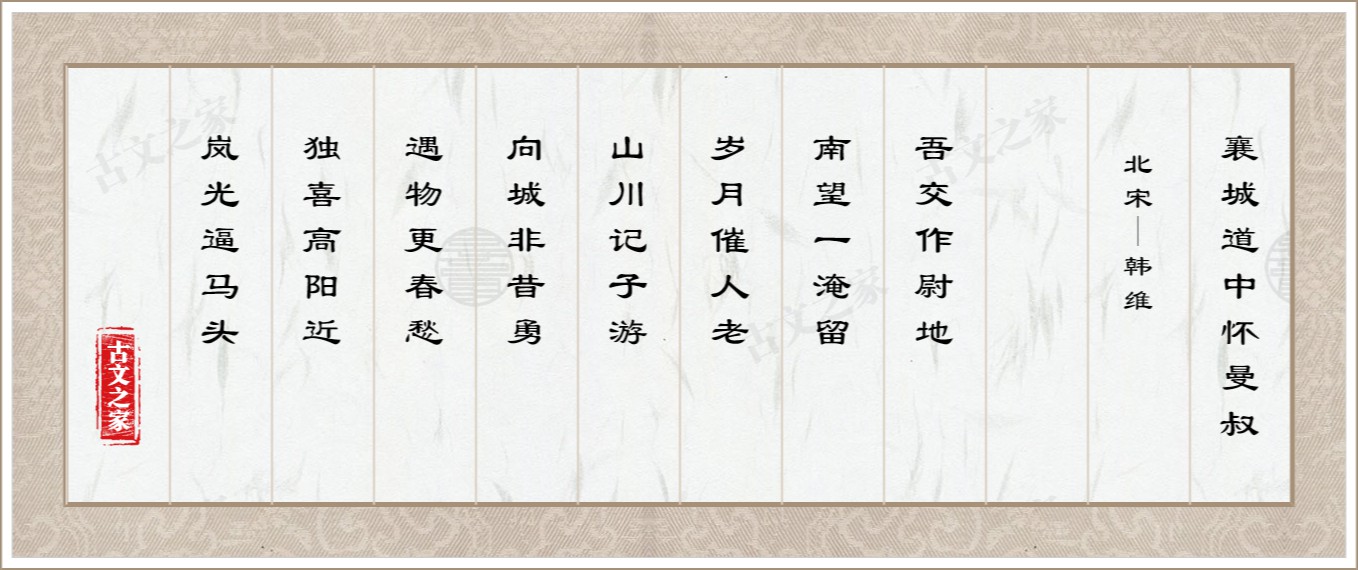 襄城道中怀曼叔
北宋—韩维
吾交作尉地
南望一淹留
岁月催人老
山川记子游
向城非昔勇
遇物更春愁
独喜高阳近
岚光逼马头
古文之家
古文之家
古文之家
古文之家